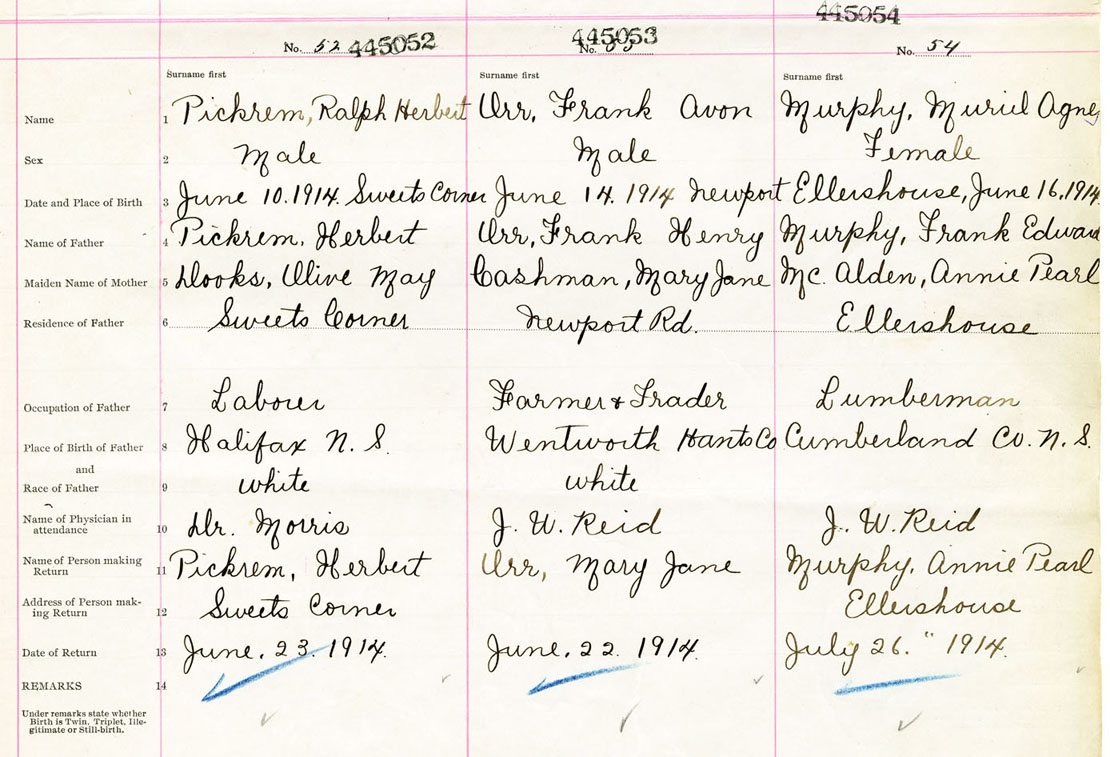 445054
No. 52 445052 445053 No. 54
Surname first Surname first Surname first
Name 1 Pickrem, Ralph Herbert Orr, Frank Avon Murphy, Muriel Agnes
Sex 2 Male Male Female
Date and Place of Birth 3 June 10. 1914. Sweets Corner June 14. 1914 Newport Ellershouse, June 16, 1914
Name of Father 4 Pickrem, Herbert Orr, Frank Henry Murphy, Frank Edward
Maiden Name of Mother 5 Hooks, Olive May Cashman, Mary Jane Mc. Alden, Annie Pearl
Residence of Father 6 Sweets Corner Newport Rd. Ellershouse
Occupation of Father 7 Laborer Farmer & Trader Lumberman
Place of Birth of Father 8 Halifax N. S. Wentworth Hants Co Cumberland Co. N. S.
and
Race of Father 9 white white
Name of Physician in
attendance 10 Dr. Morris J. W. Reid J. W. Reid
Name of Person making
Return 11 Pickrem, Herbert Orr, Mary Jane Murphy, Annie Pearl
Address of Person mak-
ing Return 12 Sweets Corner Ellershouse
Date of Return 13 June. 23. 1914. June. 22. 1914. July 26." 1914.
REMARKS 14
Under remarks state whether
Birth is Twin, Triplet, Ille-
gitimate or Still-birth.